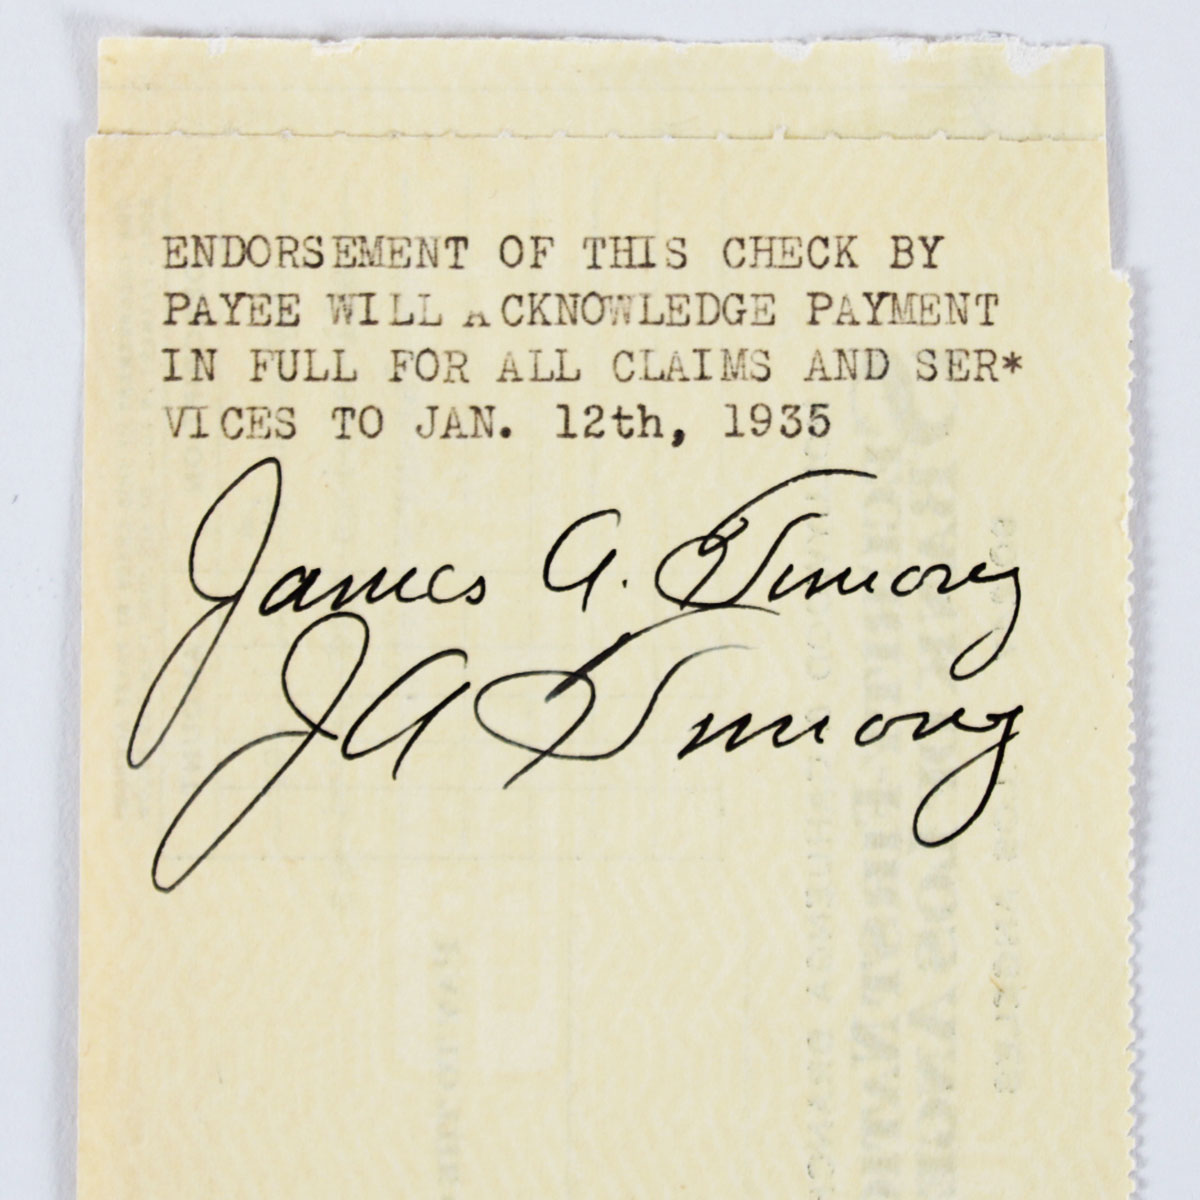 ENDORSEMENT OF THIS CHECK BY
PAYEE WILL ACKNOWLEDGE PAYMENT
IN FULL FOR ALL CLAIMS AND SER*
VICES TO JAN. 12th, 1935
James A. Timony
JA Timony